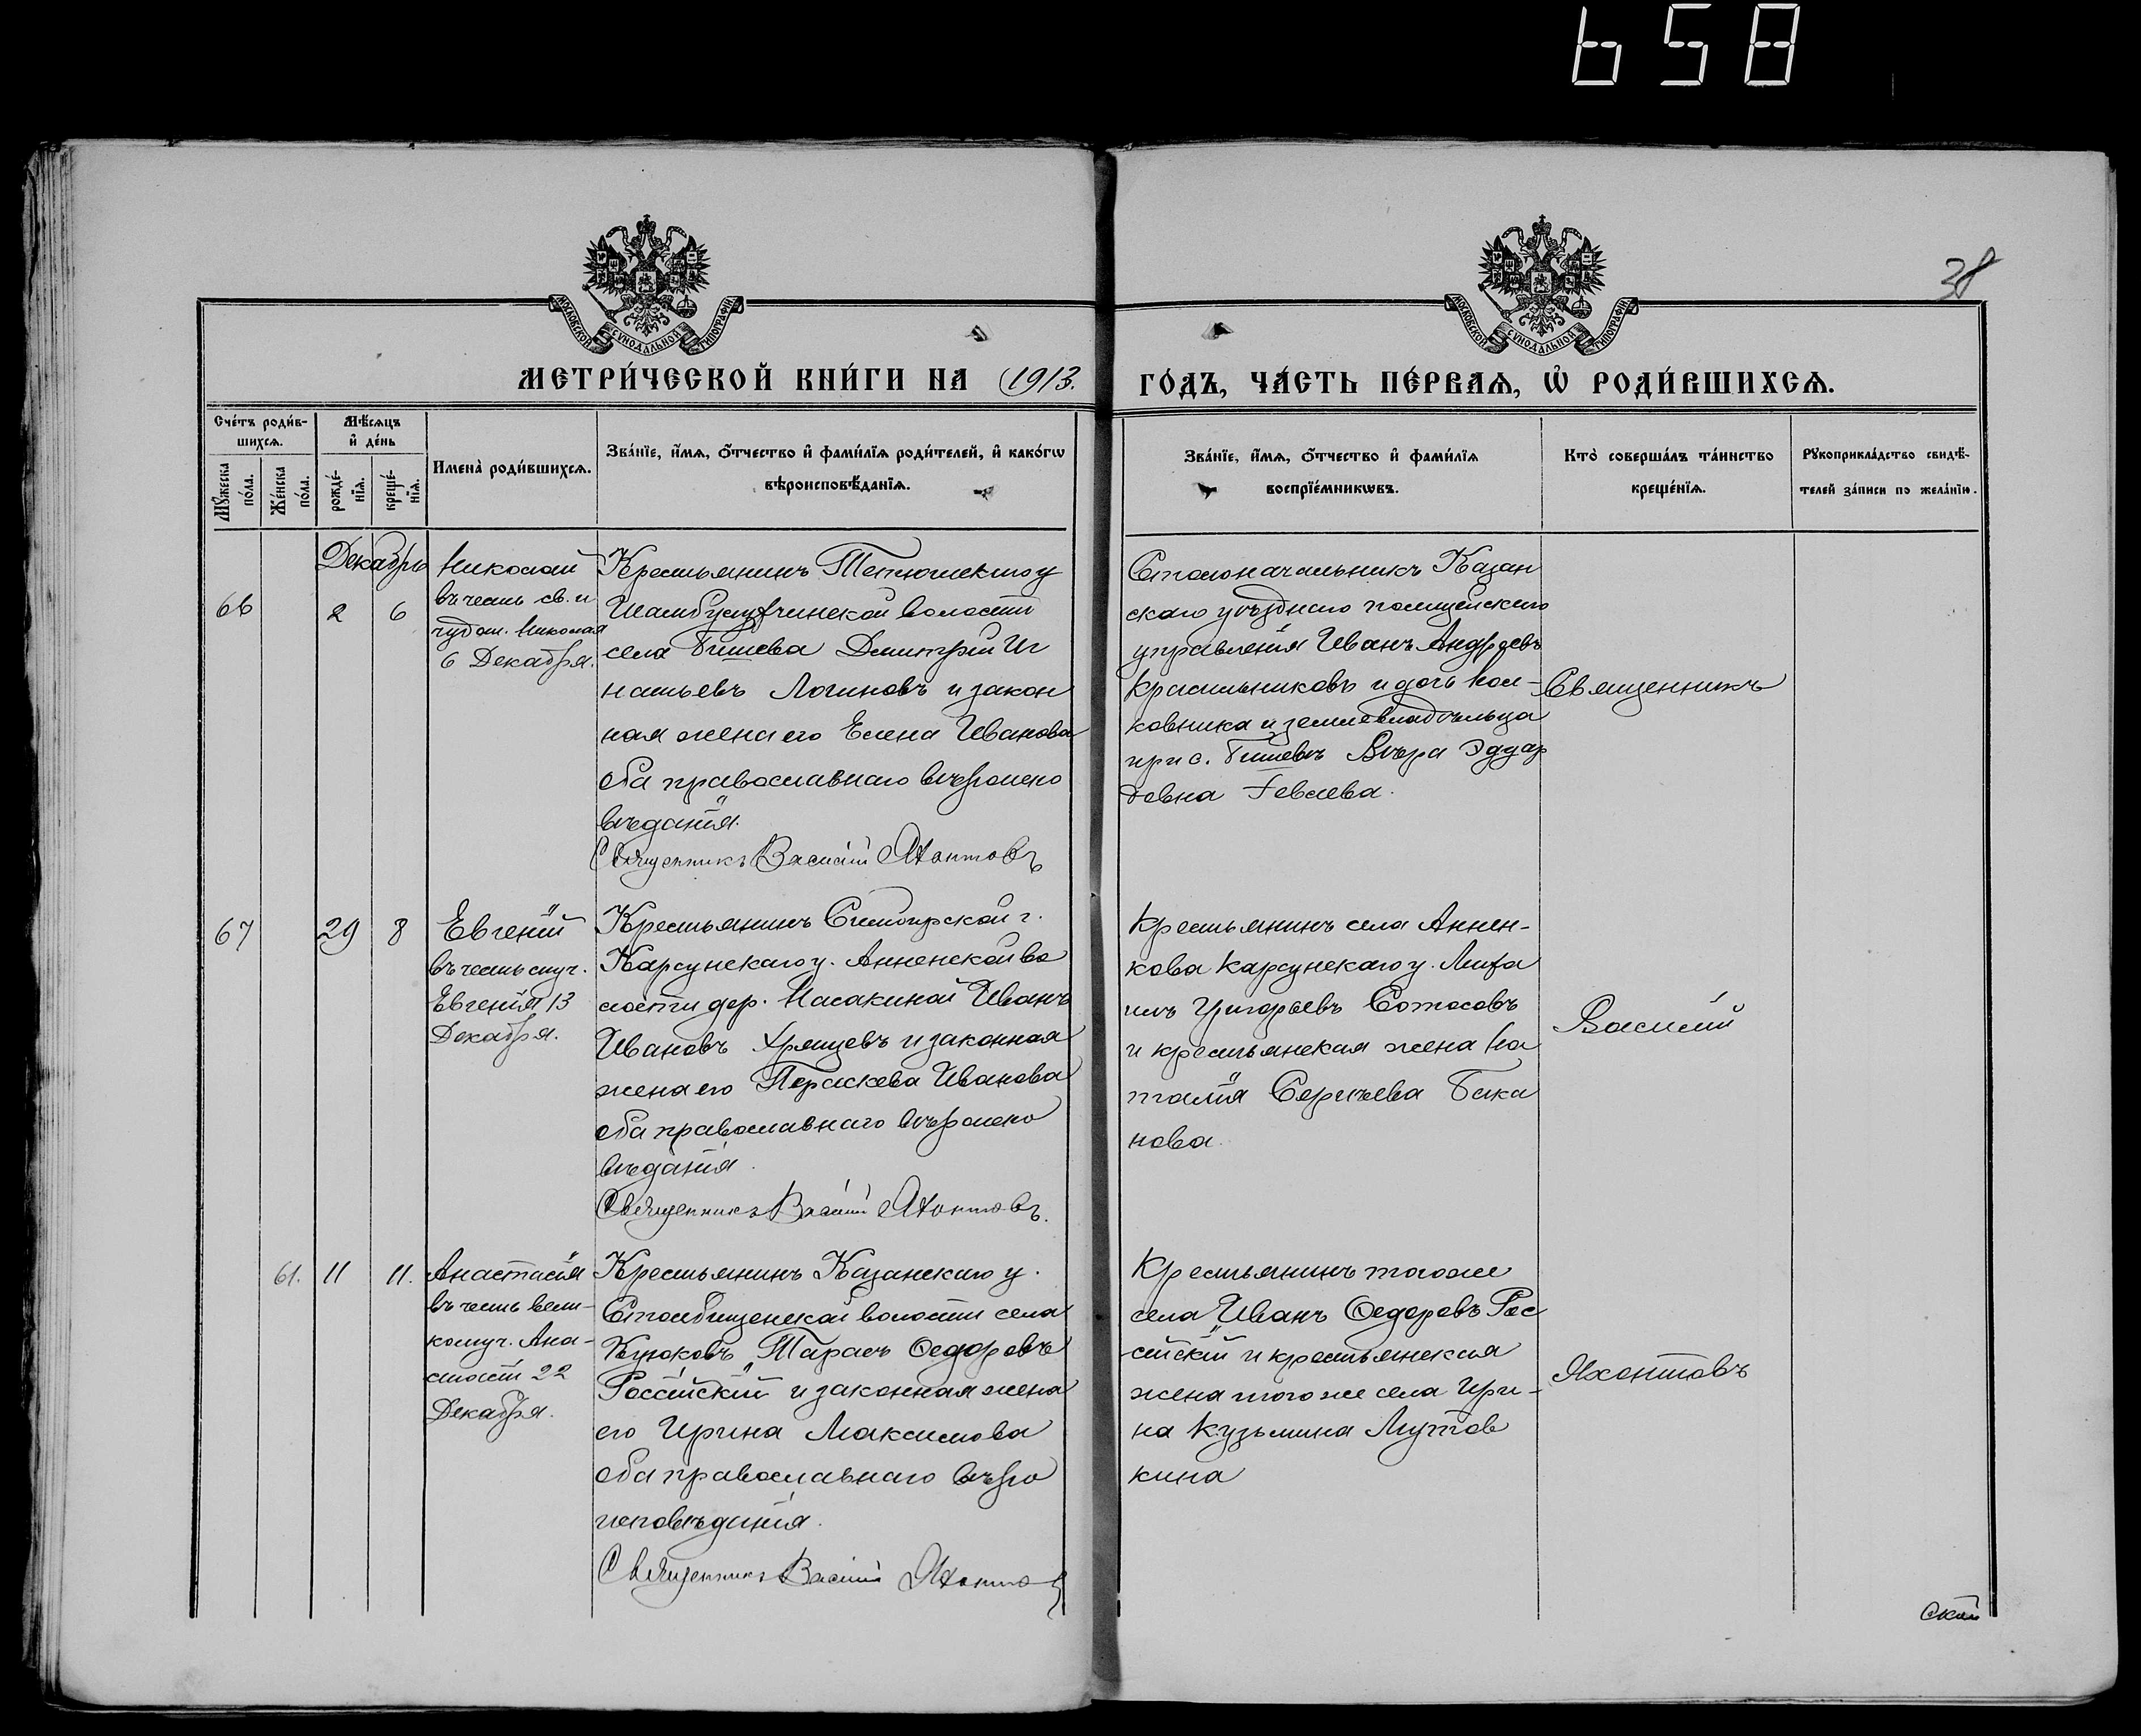 658
38
МОСКОВСКОЙ СѴНОДАЛЬНОЙ ТИПОГРАФІИ
МОСКОВСКОЙ СѴНОДАЛЬНОЙ ТИПОГРАФІИ
МЕТРИ́ЧЕСКОЙ КНИ́ГИ НА 1913.
ГО́ДЪ, ЧА́СТЬ ПЕ́РВАѦ, Ѡ҆ РОДИ́ВШИХСѦ.
Сче́тъ роди́в-
шихсѧ.
Мꙋ́жеска по́ла.
Же́нска по́ла.
Мѣ́сѧцъ
и҆ де́нь
рожде́-нїѧ.
креще́-нїѧ.
Имена̀ роди́вшихсѧ.
Зва́нїе, и҆́мѧ, ѻ҆́тчество и҆ фами́лїѧ роди́телей, и҆ како́гѡ
вѣроисповѣ́данїѧ.
Зва́нїе, и҆́мѧ, ѻ҆́тчество и҆ фами́лїѧ
воспрїе́мникѡвъ.
Кто̀ соверша́лъ та́инство
креще́нїѧ.
Рꙋкоприкла́дство свидѣ́-
телей за́писи по жела́нїю.
Декабрь
66
2
6
Николай
въ честь св. и
чудотв. Николая
6 Декабря.
Крестьянинъ Тетюшскаго у
волости
села Бишева Дмитрій Иг
натьевъ Логиновъ и закон
ная жена его Елена Иванова
оба православнаго вѣроиспо
вѣданія.
Священникъ Василій Яхонтовъ
Столоначальникъ Казан
скаго уѣзднаго полицейскаго
управленія Иванъ Андреевъ
Красильниковъ и дочь пол-
ковника и землевладѣльца
при с. Бишевѣ Вѣра Эдуар
довна Гевлева.
Священникъ
67
29
8
Евгеній
въ честь муч.
Евгенія 13
Декабря.
Крестьянинъ Симбирской г.
Карсунскаго у. Анненской во
лости дер. Насакиной Иванъ
Ивановъ Хрящевъ и законная
жена его Параскева Иванова
оба православнаго вѣроиспо
вѣданія.
Священникъ Василій Яхонтовъ.
Крестьянинъ села Аннен-
кова Карсунскаго у. Миха
илъ Григорьевъ
и крестьянская жена На
талія Сергѣева Бака
нова.
Василій
61.
11
11.
Анастасія
въ честь вели-
комуч. Ана-
стасіи 22
Декабря.
Крестьянинъ Казанскаго у.
Столбищенской волости села
Куюковъ Тарасъ Ѳедоровъ
Россійскій и законная жена
его Ирина Максимова
оба православнаго вѣро
исповѣданія.
Священникъ Василій Яхонтовъ
Крестьянинъ того же
села Иванъ Ѳедоровъ Рос
сійскій и крестьянская
жена того же села Ири-
на Кузьмина Лутов
кина
Яхонтовъ